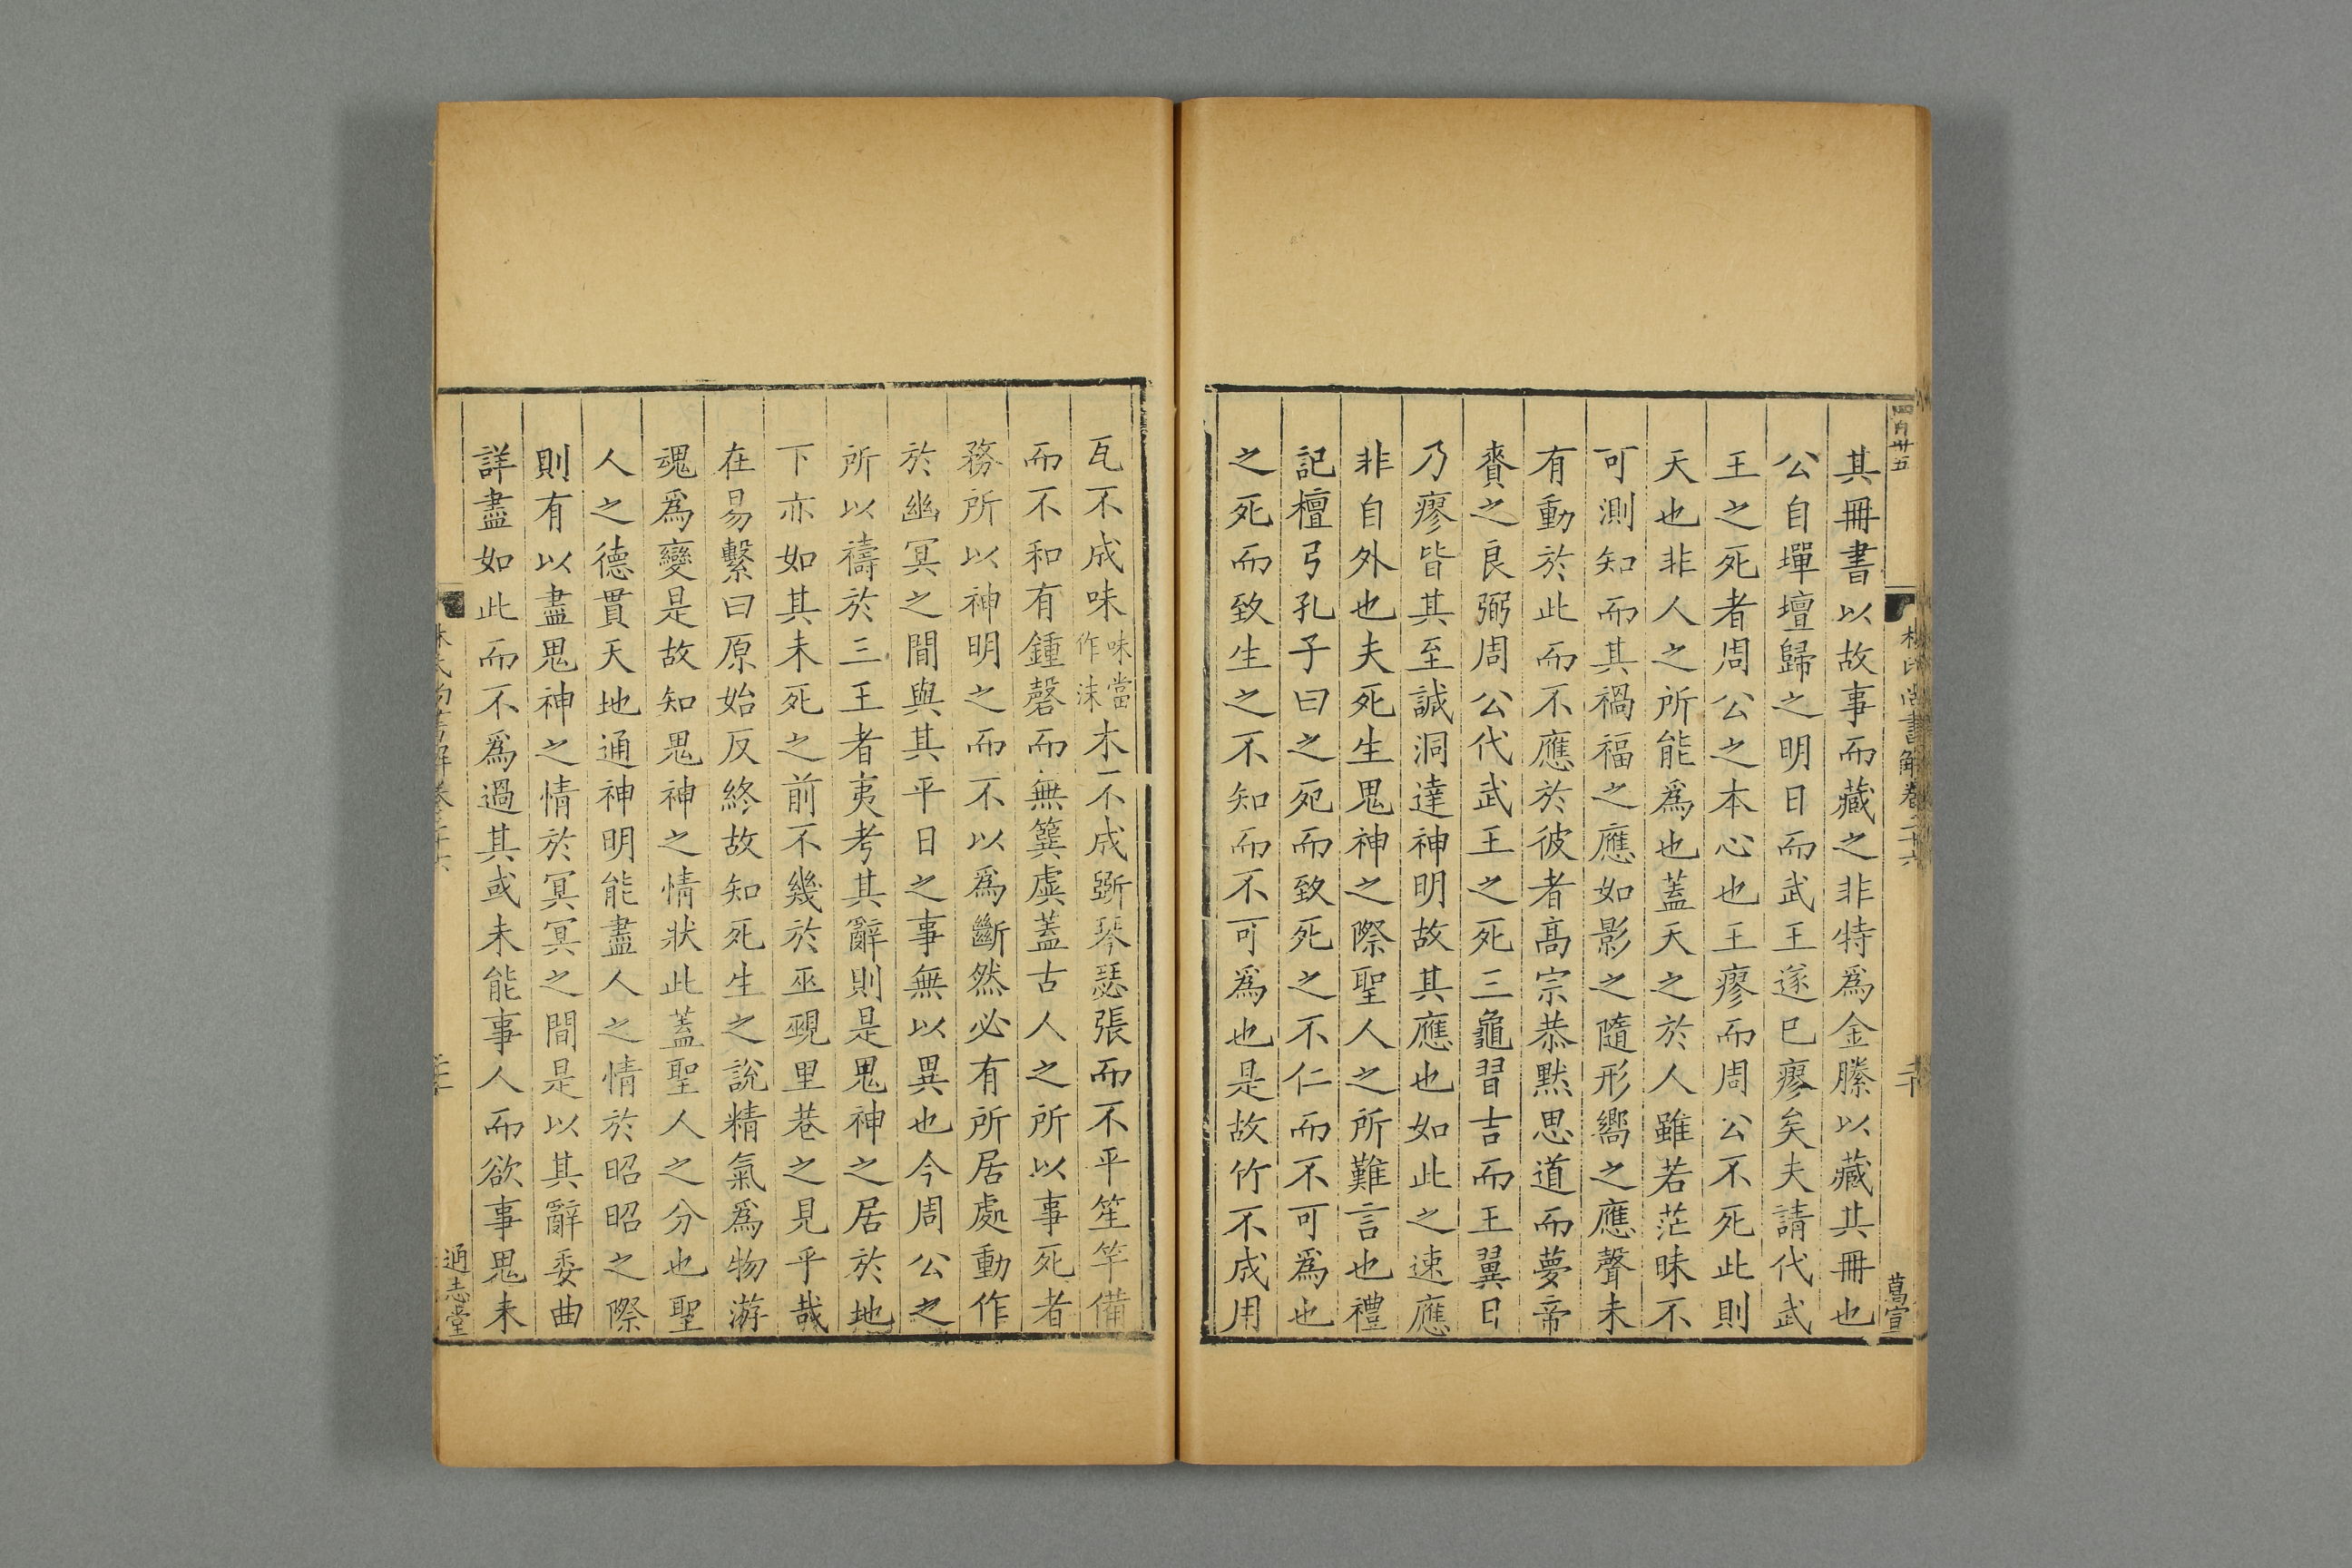 其冊書以故事而藏之非特爲金縢以藏其冊也
公自墠壇歸之明日而武王遂已瘳矣夫請代武
王之死者周公之本心也王瘳而周公不死此則
天也非人之所能爲也蓋天之於人雖若茫昧不
可測知而其禍福之應如影之隨形嚮之應聲未
有動於此而不應於彼者高宗恭黙思道而夢帝
賚之良弼周公代武王之死三龜習吉而王翼日
乃瘳皆其至誠洞達神明故其應也如此之速應
非自外也夫死生鬼神之際聖人之所難言也禮
記檀弓孔子曰之死而致死之不仁而不可爲也
之死而致生之不知而不可爲也是故竹不成用
瓦不成味味當作沬木不成斲琴瑟張而不平笙竽備
而不和有鍾磬而無簨虡蓋古人之所以事死者
務所以神明之而不以爲斷然必有所居處動作
於幽冥之間與其平日之事無以異也今周公之
所以禱於三王者夷考其辭則是鬼神之居於地
下亦如其未死之前不幾於巫覡里巷之見乎哉
在易繫曰原始反終故知死生之說精氣爲物游
魂爲變是故知鬼神之情狀此蓋聖人之分也聖
人之德貫天地通神明能盡人之情於昭昭之際
則有以盡鬼神之情於冥冥之間是以其辭委曲
詳盡如此而不爲過其或未能事人而欲事鬼未
通志堂